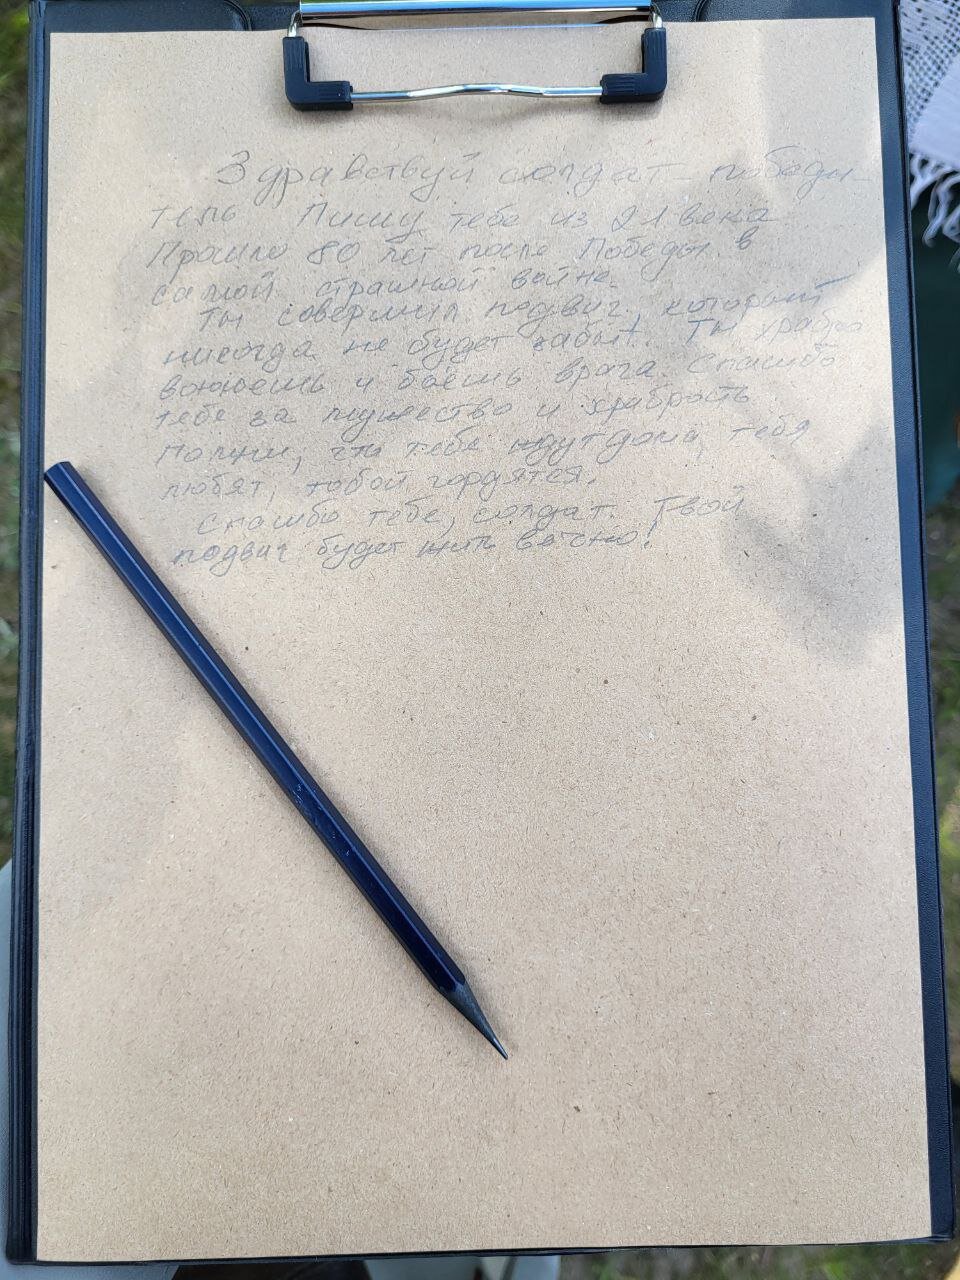 Здравствуй солдат - победи-
тель Пишу тебе из 21 века
Прошло 80 лет после Победы в
самой страшной войне.
Ты совершил подвиг, который
никогда не будет забыт. Ты храбро
воюешь и бьёшь врага. Спасибо
тебе за мужество и храбрость
Помни, что тебя ждут дома, тебя
любят, тобой гордятся.
Спасибо тебе, солдат. Твой
подвиг будет жить вечно!